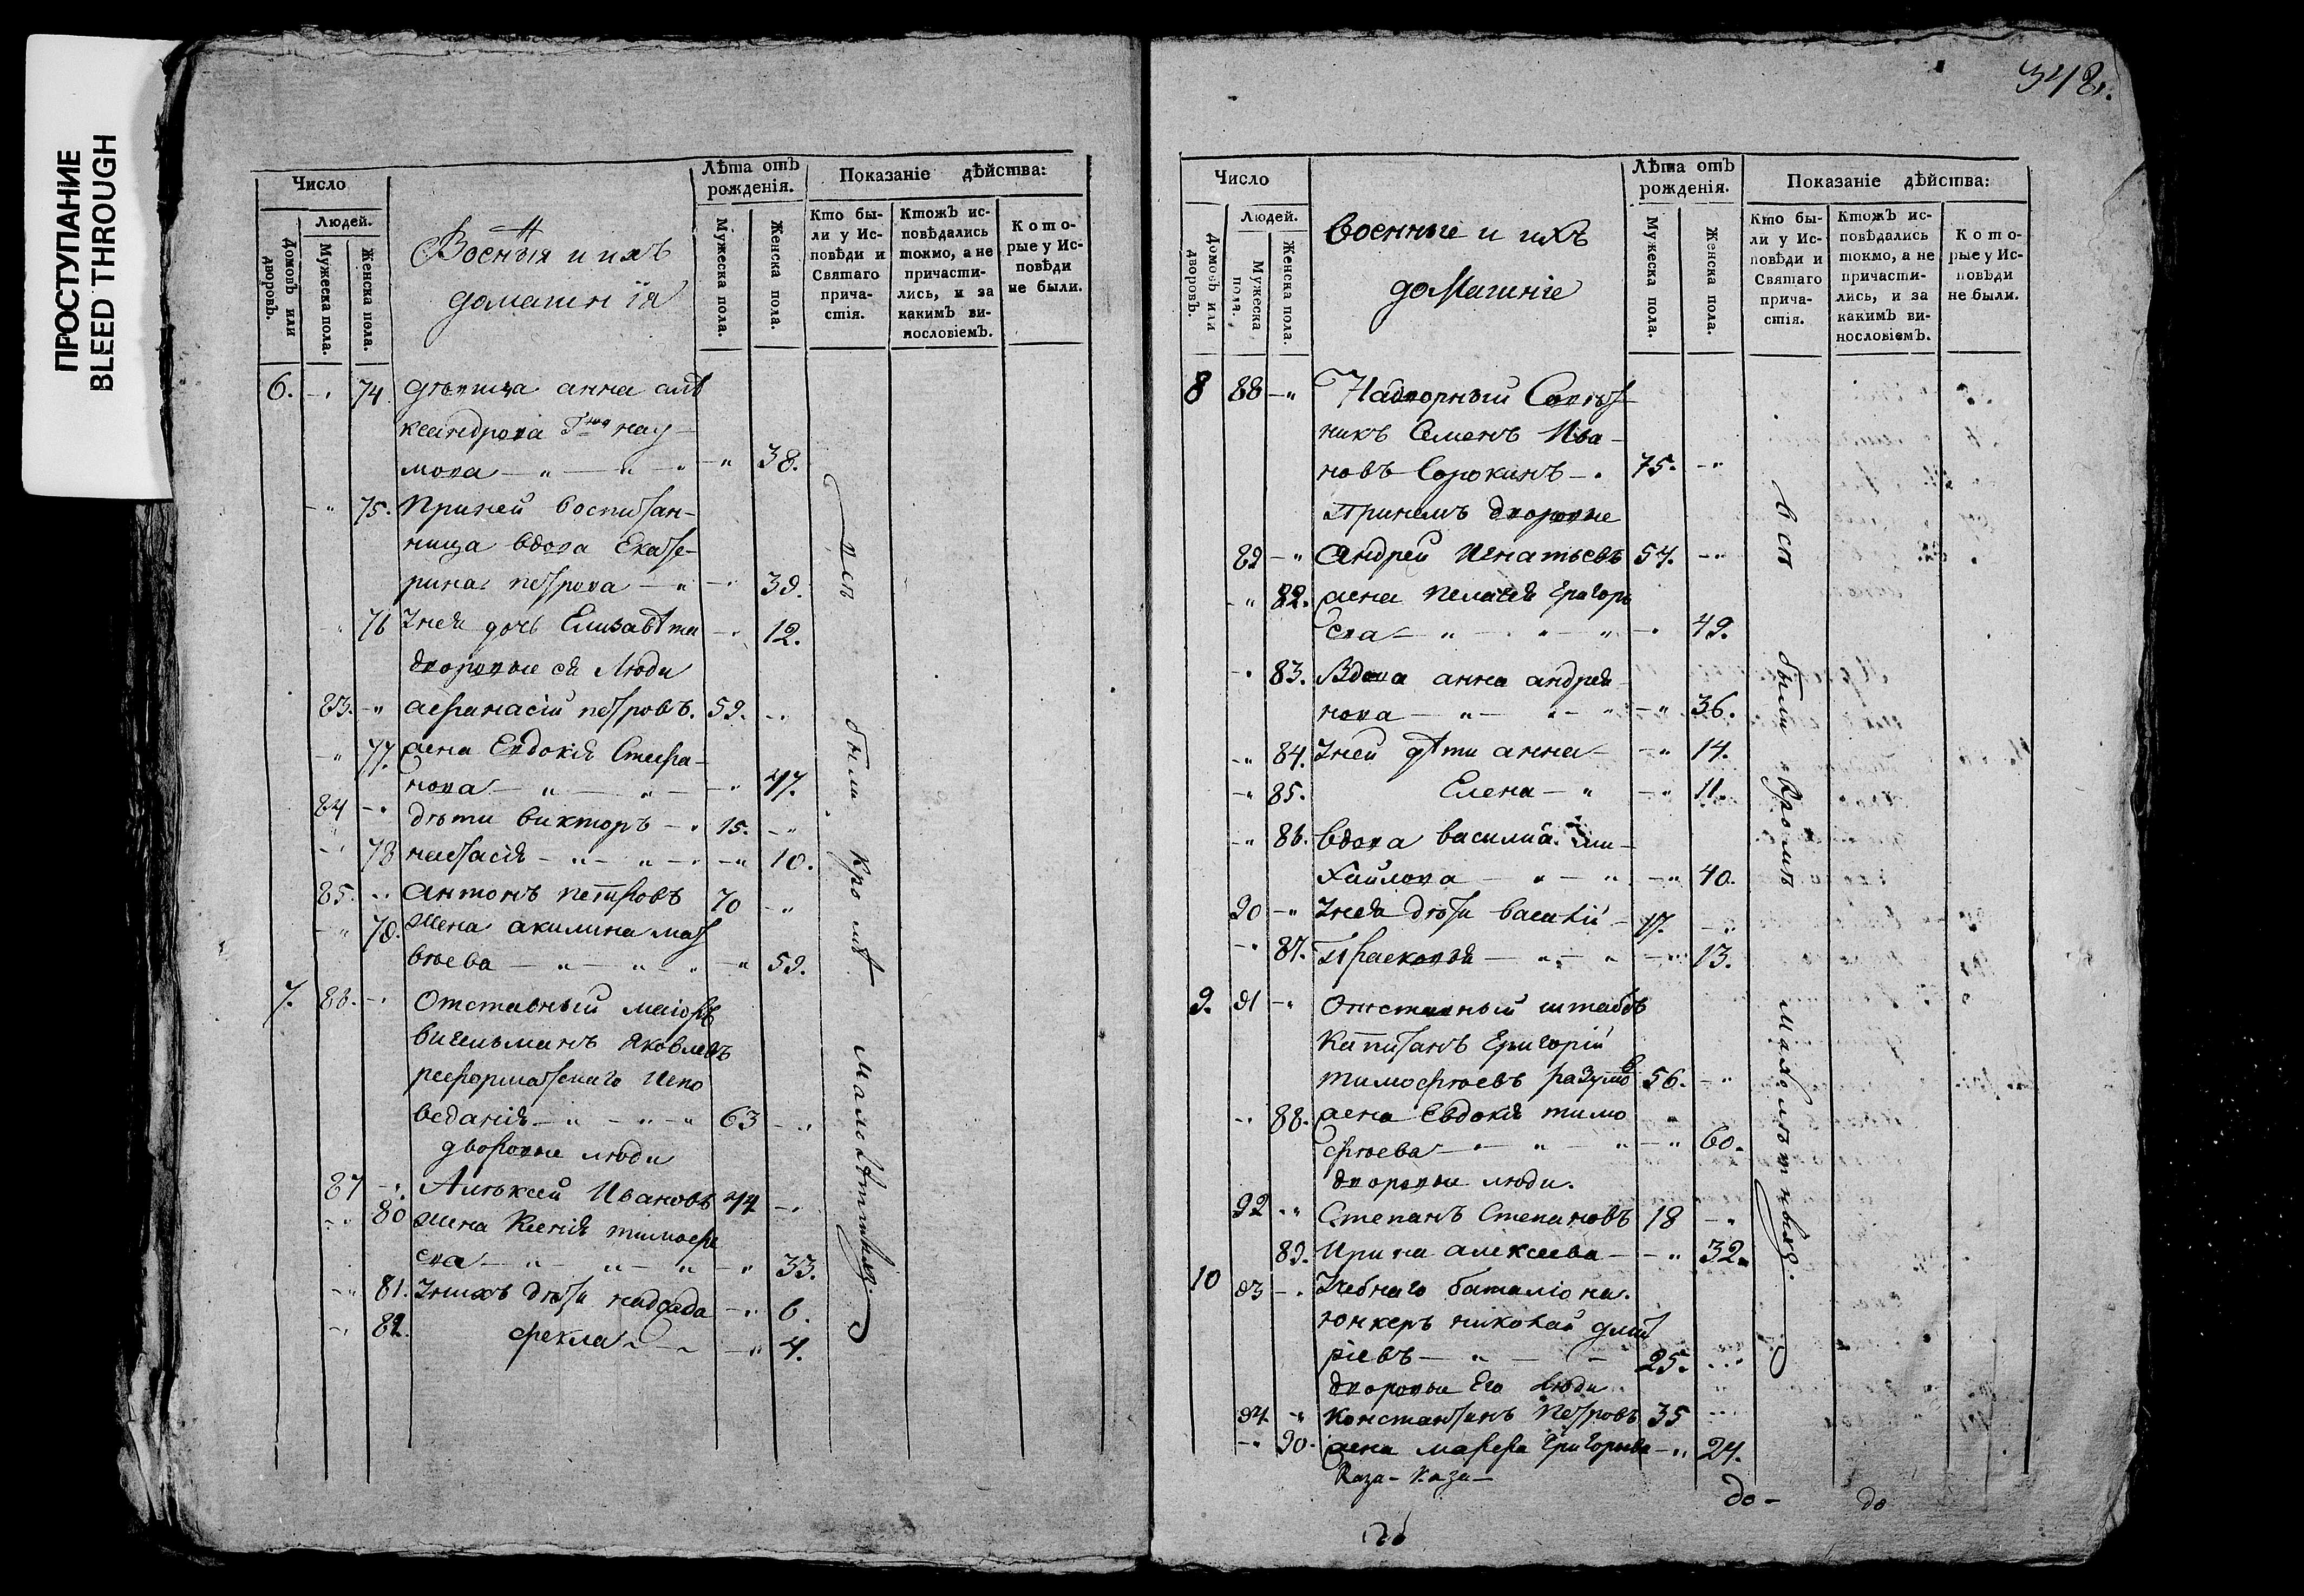 ПРОСТУПАНИЕ
BLEED THROUGH
Число
Людей.
Домовъ или дворовъ.
Мужеска пола.
Женска пола.
Военныя и ихъ
домашнія
Лѣта отъ рожденія.
Мужеска пола.
Женска пола.
Показаніе дѣйства:
Кто были у Исповѣди и Святаго причастія.
Ктожъ исповѣдались токмо, а не причастились, и за какимъ винословіемъ.
Которые у Исповѣди не были.
6. 74. дѣвица анна але
ксандрова
мова 38.
75. При ней воспитан-
ница вдова Екате-
рина петрова 39.
76 Унея дочь Елисавѣта 12.
дворовые ея люди
83. афанасій петровъ. 59.
77. жена Евдокія Стефа-
нова 47.
84 дѣти викторъ 15.
78 настасія 10.
85. антонъ петровъ 70
79. жена акилина мат
вѣева 59.
7. 86. Отставный маіоръ
вильгельмъ яковлевъ
реформатскаго испо
веданія 63
дворовые люди
87 Алѣксей Ивановъ 44
80 жена Ксенія тимофе
ева 33.
81. Унихъ дѣти 6.
82. фекла 4.
всѣ были кромѣ малолѣтныхъ.
348.
Число
Людей.
Домовъ или дворовъ.
Мужеска пола.
Женска пола.
военные и ихъ
домашніе
Лѣта отъ рожденія.
Мужеска пола.
Женска пола.
Показаніе дѣйства:
Кто были у Исповѣди и Святаго причастія.
Ктожъ исповѣдались токмо, а не причастились, и за какимъ винословіемъ.
Которые у Исповѣди не были.
8 88 Надворный Совѣт
никъ Семенъ Ива-
новъ Сорокинъ 75.
При немъ дворовые
89 Андрей Игнатьевъ 54.
82. жена пелагея григорь
ева 49.
83. Вдова анна андрея
нова 36.
84. Уней дѣти анна 14.
85. Елена 11.
86. вдова василиса ми-
хайлова 40.
90 Унея дѣти василій 17.
87. Прасковья 13.
9. 91 Отставный штабсъ
капитанъ Григорій
тимофѣевъ разумовъ 56.
88. жена Евдокія тимо
фѣева 60.
дворовые люди.
92 Степанъ Степановъ 18
89. Ирина алексеева 32.
10 93 Учебнаго баталіона
юнкеръ николай дмит
ріевъ 25.
дворовые Его люди
94 константинъ петровъ 35
90. жена марфа григорьева 24.
всѣ были кромѣ малолѣтныхъ.
до- до